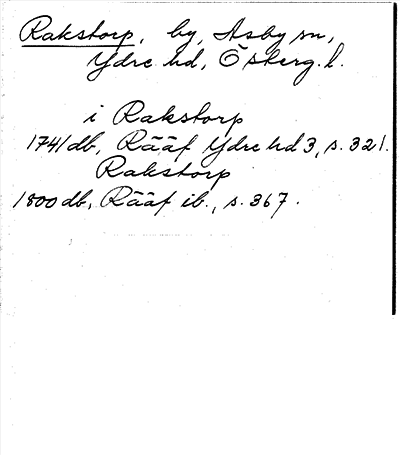 Rakstorp, by, Asby sn,
Ydre hd, Österg. l.
i Rakstorp
1741 db, Rääf Ydre hd 3, s. 321.
Rakstorp
1800 db, Rääf ib., s. 367.